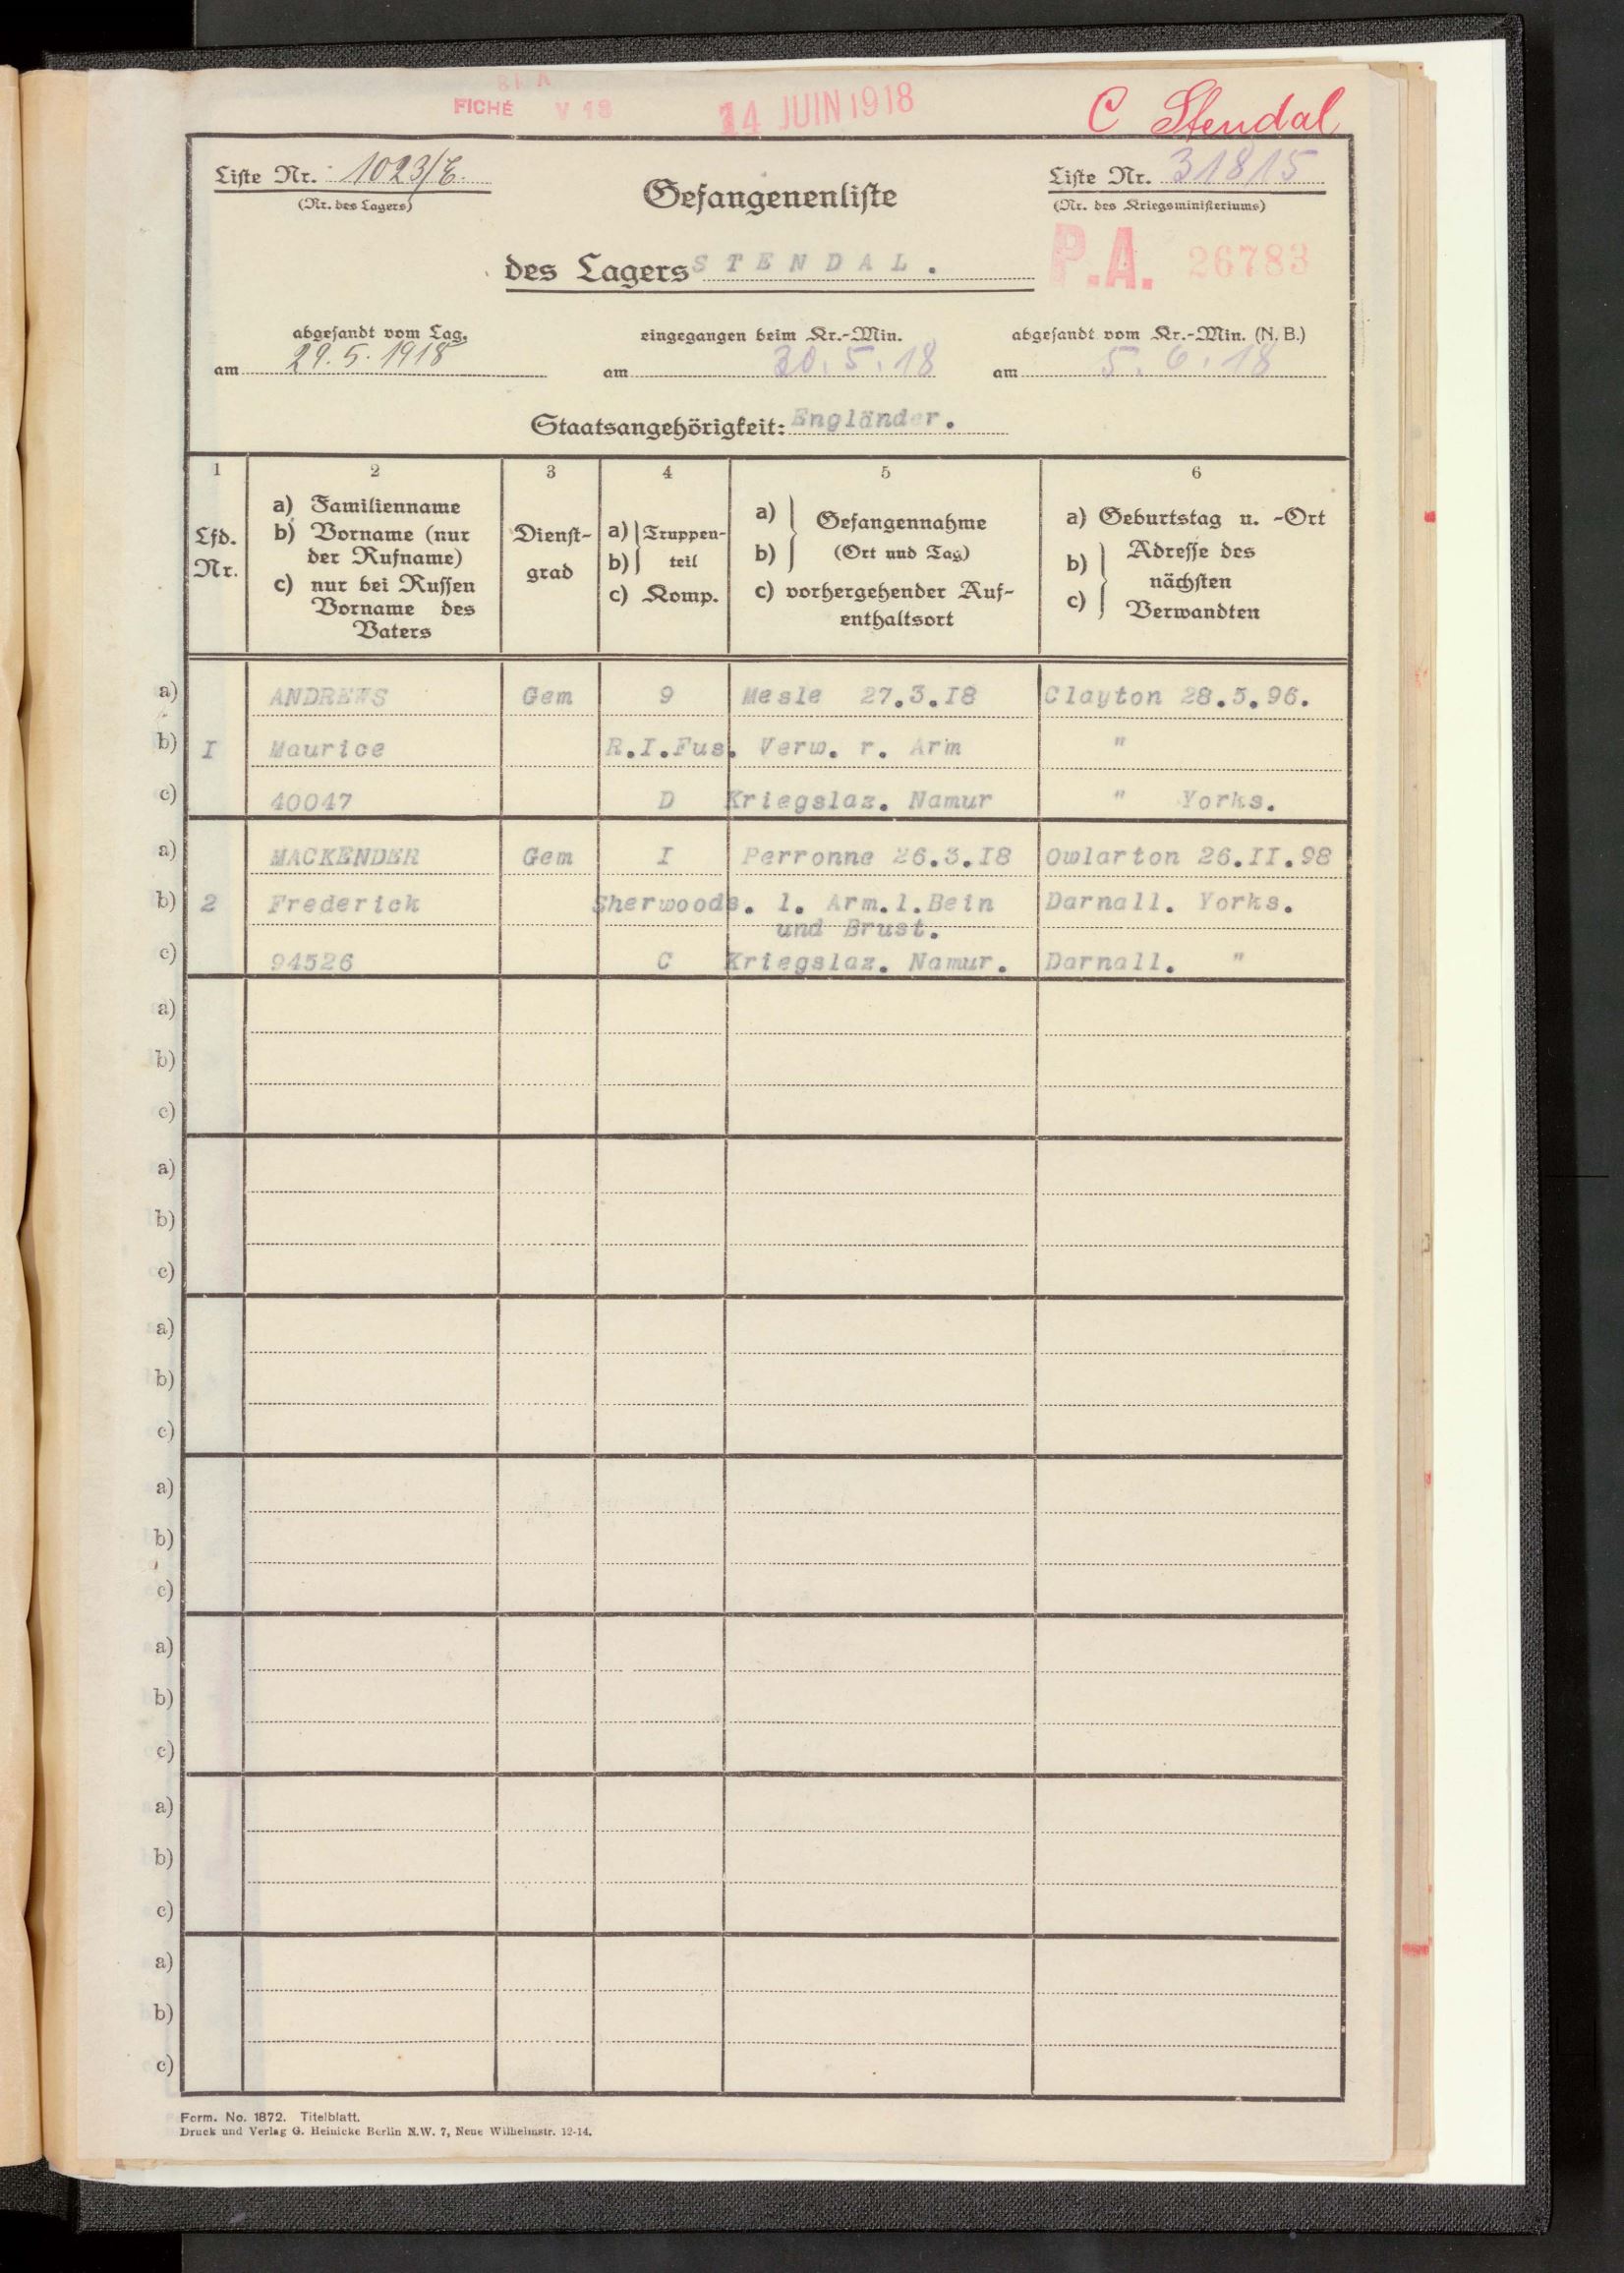 FICHÉ V 18
14 JUIN 1918
C Stendal
Liste Nr. 1023/E.
(Nr. des Lagers)
Gefangenenliste
Liste Nr. 31815
(Nr. des Kriegsministeriums)
des Lagers STENDAL.
P.A. 26783
abgesandt vom Lag.
am 29.5.1918
eingegangen beim Kr.-Min.
am 30.5.18
abgesandt vom Kr.-Min. (N. B.)
am 5.6.18
Staatsangehörigkeit: Engländer.
1 2 3 4 5 6
Lfd. Nr.
a) Familienname
b) Vorname (nur
der Rufname)
c) nur bei Russen
Vorname des
Vaters
Dienst-
grad
a) Truppen-
b) teil
c) Komp.
a) Gefangennahme
b) (Ort und Tag)
c) vorhergehender Auf-
enthaltsort
a) Geburtstag u. -Ort
b) Adresse des
nächsten
c) Verwandten
a) ANDREWS Gem 9 Mesle 27.3.I8 Clayton 28.5.96.
b) I Maurice R.I.Fus. Verw. r. Arm "
c) 40047 D Kriegslaz. Namur " Yorks.
a) MACKENDER Gem I Perronne 26.3.I8 Owlarton 26.II.98
b) 2 Frederick Sherwoods. l. Arm.l.Bein Darnall. Yorks.
und Brust.
c) 94526 C Kriegslaz. Namur. Darnall. "
a)
b)
c)
a)
b)
c)
a)
b)
c)
a)
b)
c)
a)
b)
c)
a)
b)
c)
a)
b)
c)
Form. No. 1872. Titelblatt.
Druck und Verlag G. Heinicke Berlin N.W. 7, Neue Wilhelmstr. 12-14.